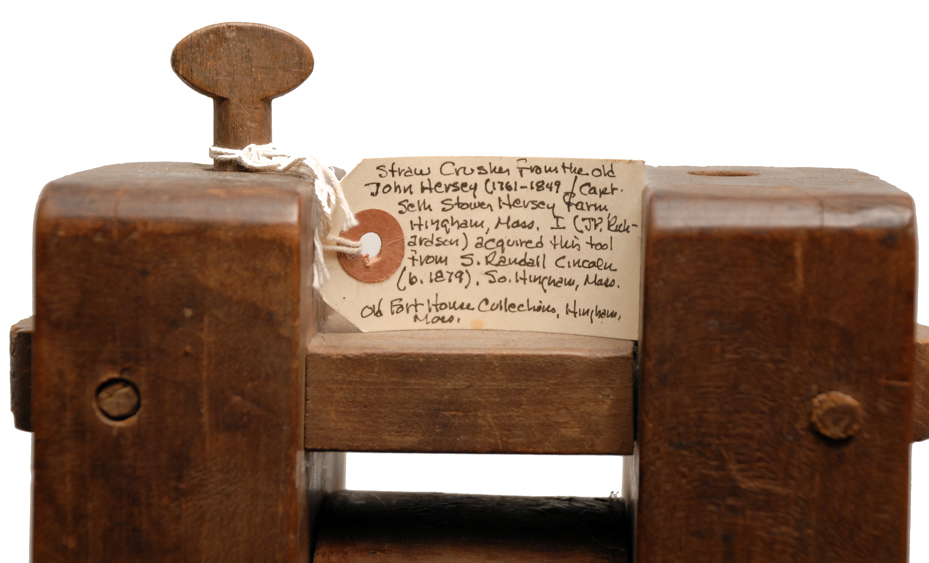 Straw Crusher from the old
John Hersey (1761-1849 / Capt.
Seth Stower Hersey Farm
Hingham, Mass. I (J.V. Rich-
ardson) acquired this tool
from S. Randall Lincoln
(b. 1879), So. Hingham, Mass.
Old Fort House Collections, Hingham,
Mass.